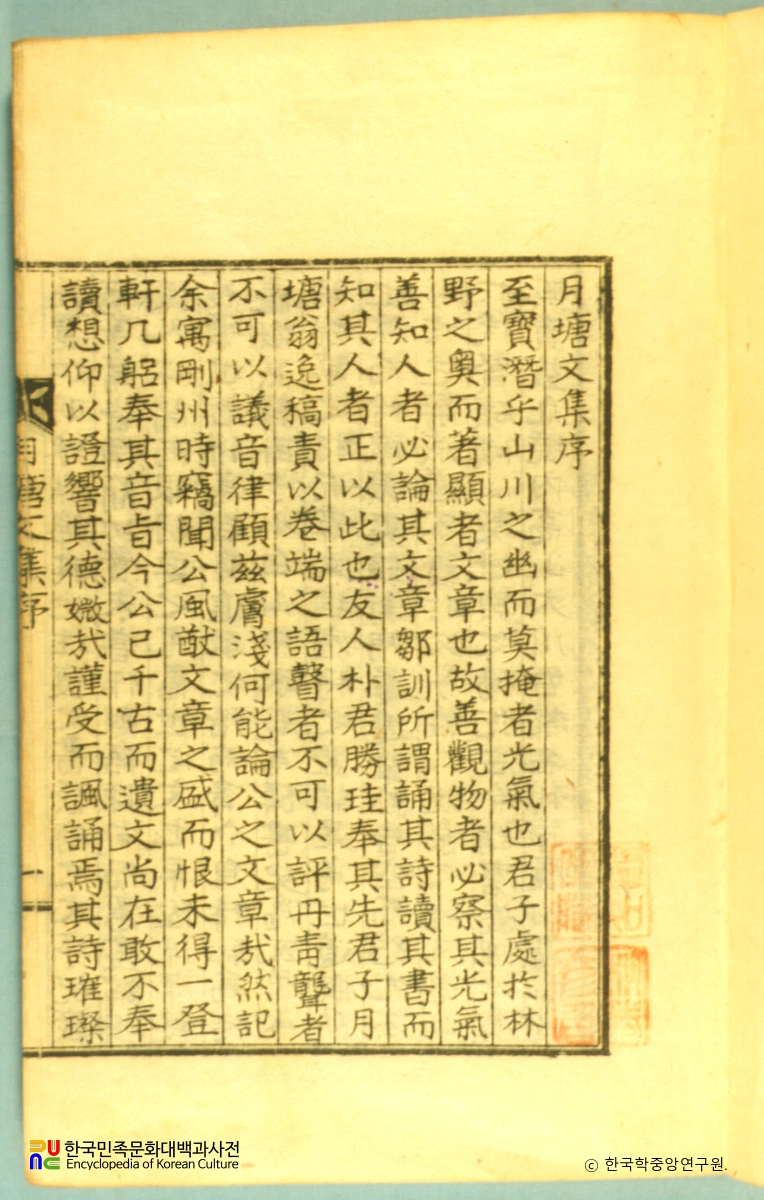 月塘文集序
至寶潛乎山川之幽而莫掩者光氣也君子處於林
野之奧而著顯者文章也故善觀物者必察其光氣
善知人者必論其文章鄒訓所謂誦其詩讀其書而
知其人者正以此也友人朴君勝珪奉其先君子月
塘翁逸稿責以卷端之語瞽者不可以評丹靑聾者
不可以議音律顧玆膚淺何能論公之文章㢤然記
余寓剛州時竊聞公風猷文章之盛而恨未得一登
軒几躬奉其音旨今公已千古而遺文尚在敢不奉
讀想仰以證響其德媺㢤謹受而諷誦焉其詩璀璨
月塘文集序
一
한국민족문화대백과사전
Encyclopedia of Korean Culture
ⓒ 한국학중앙연구원.